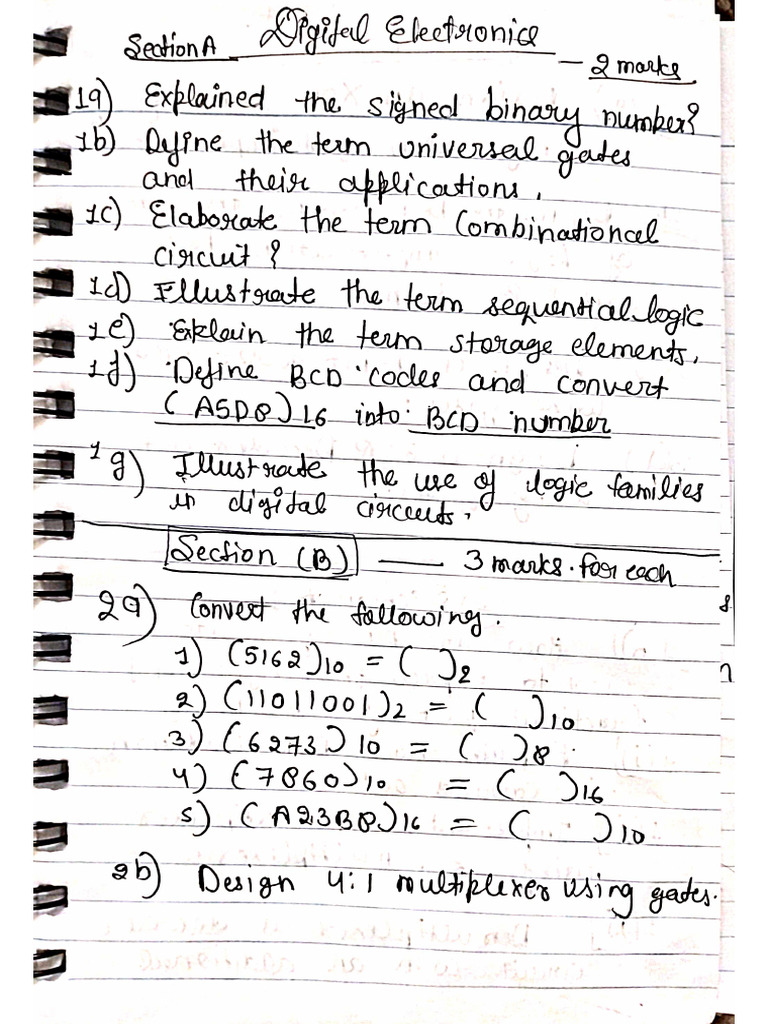 Digital Electronics
Section A
— 2 marks
1a) Explained the signed binary number?
1b) Define the term universal gates
and their applications.
1c) Elaborate the term Combinational
circuit?
1d) Illustrate the term sequential logic
1e) Explain the term storage elements.
1f) Define BCD codes and convert
(A5D8)16 into BCD number
1g) Illustrate the use of logic families
in digital circuits.
Section (B) — 3 marks. for each
2a) Convert the following.
1) (5162)10 = ( )2
2) (11011001)2 = ( )10
3) (6273)10 = ( )8
4) (7860)10 = ( )16
5) (A23B8)16 = ( )10
2b) Design 4:1 multiplexer using gates.